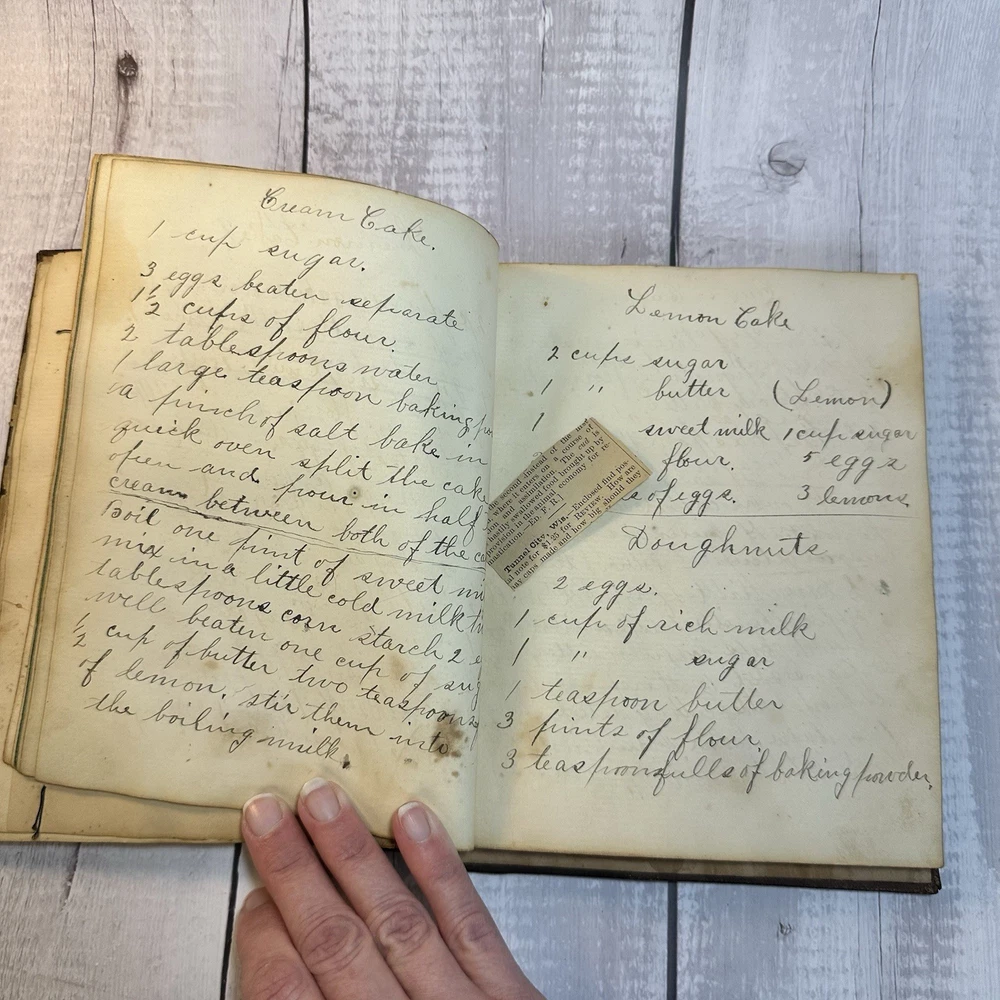 Cream Cake.
1 cup sugar.
3 eggs beaten separate
1 1/2 cups of flour.
2 tablespoons water
1 large teaspoon baking
a pinch of salt bake in
quick oven split the cake
open and pour in half
cream between both of the
Boil one pint of sweet
mix in a little cold milk
tablespoons corn starch 2
well beaten one cup of
1/2 cup of butter two teaspoons
of lemon. stir them into
the boiling milk.
Lemon Cake
2 cups sugar
1 " butter (Lemon)
1 sweet milk 1 cup sugar
flour. 5 eggs
of eggs. 3 lemons
second instead of the
where it enters on a course of
and assimilation. The cud is
hastily swallowed food brought up by
in the animal economy for re-
mastication.—Ed. F. R.]
Tunnel City, Wis.—Enclosed find pos
al note for $1.35 for Review. How are
hay caps made and how big should they
Doughnuts
2 eggs.
1 cup of rich milk
1 " sugar
1 teaspoon butter
3 pints of flour.
3 teaspoonfulls of baking powder.